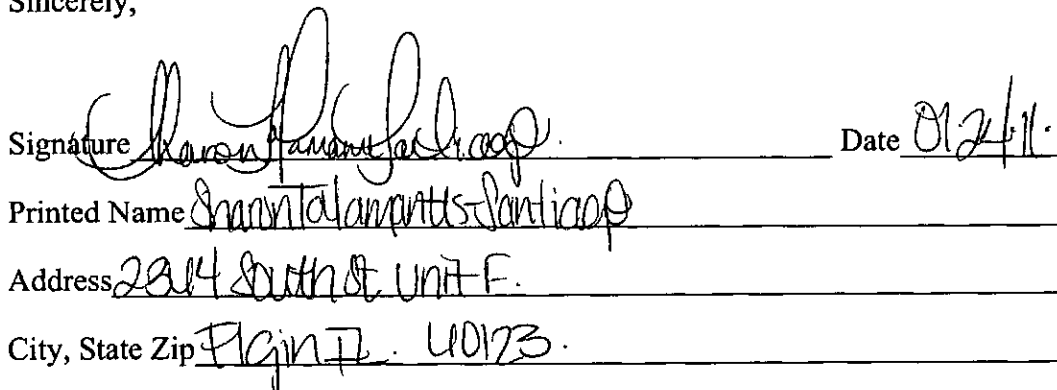 Sincerely,
Signature Sharon Talamantes Santiago. Date 01.24.11.
Printed Name Sharon Talamantes-Santiago
Address 2314 South St Unit F.
City, State Zip Elgin IL. 60123.